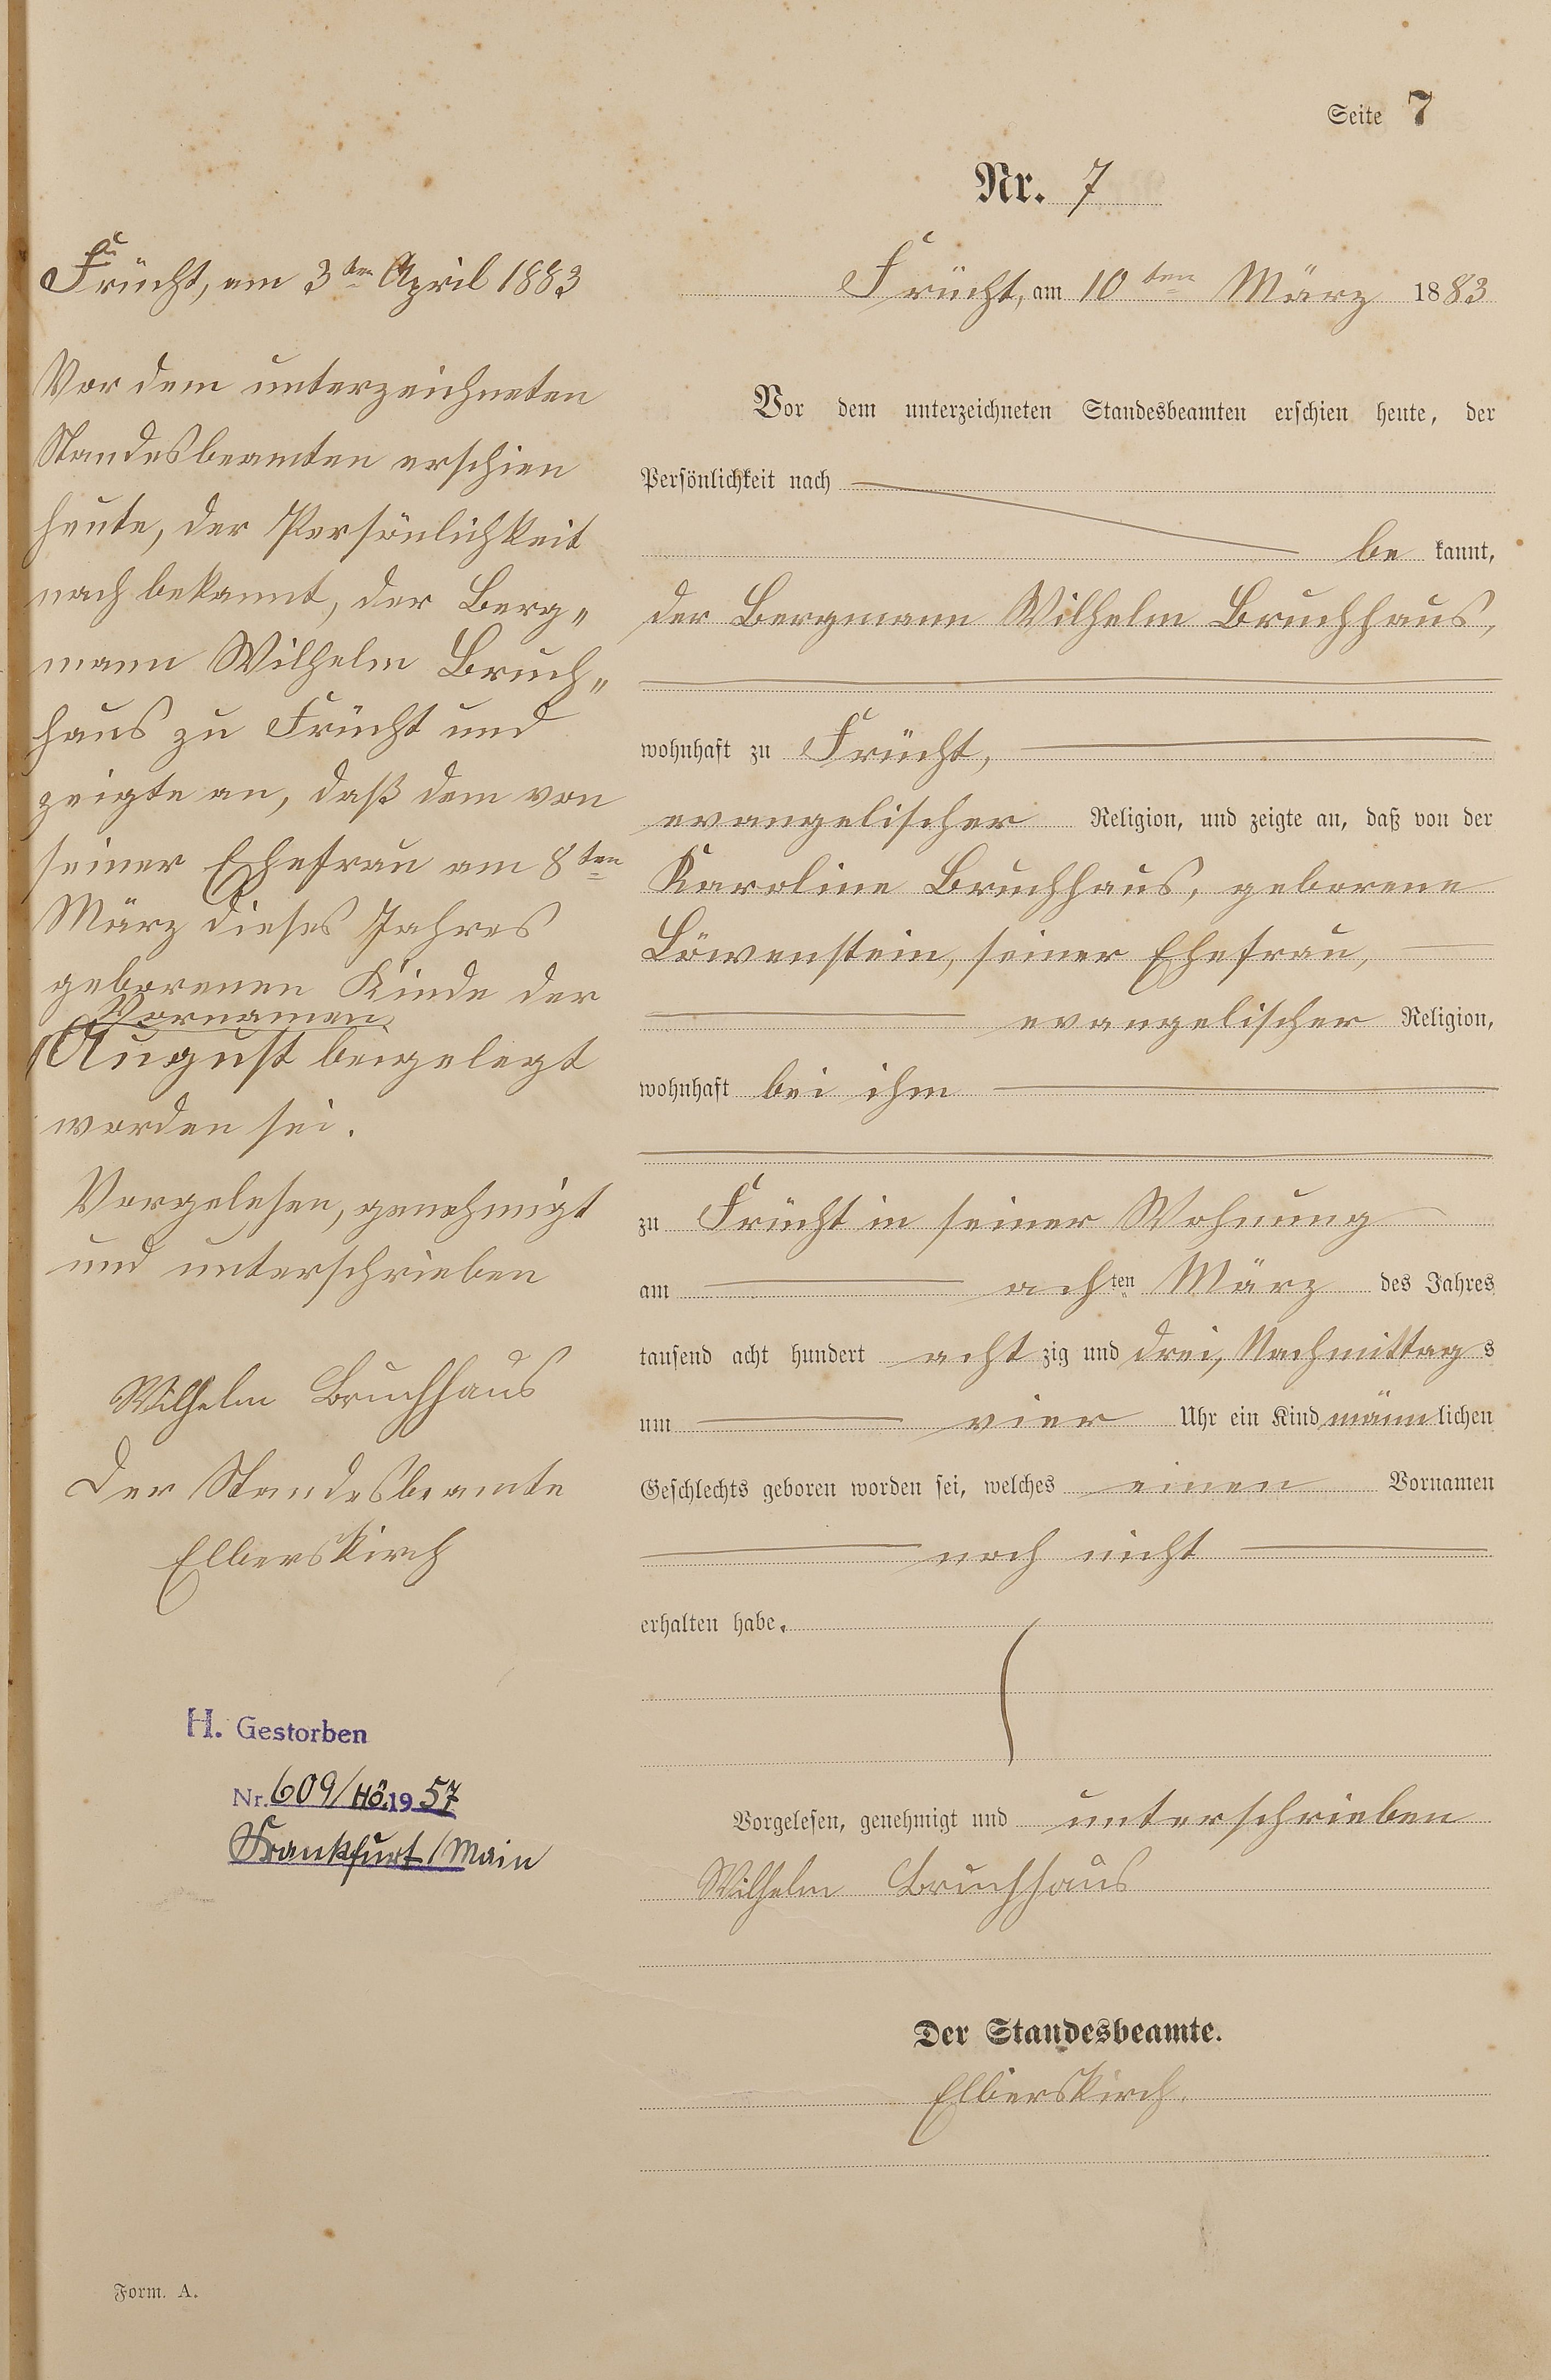 Seite 7
Nr. 7
Frücht, am 10ten März 1883
Vor dem unterzeichneten Standesbeamten erschien heute, der
Persönlichkeit nach
be kannt,
der Bergmann Wilhelm Bruchhaus,
wohnhaft zu Frücht,
evangelischer Religion, und zeigte an, daß von der
Karoline Bruchhaus, geborene
Löwenstein, seiner Ehefrau,
evangelischer Religion,
wohnhaft bei ihm
zu Frücht in seiner Wohnung
am achten März des Jahres
tausend acht hundert acht zig und drei, Nachmittags
um vier Uhr ein Kind männlichen
Geschlechts geboren worden sei, welches einen Vornamen
noch nicht
erhalten habe.
Vorgelesen, genehmigt und unterschrieben
Wilhelm Bruchhaus
Der Standesbeamte.
Elberskirch.
Frücht, am 3ten April 1883
Vor dem unterzeichneten
Standesbeamten erschien
heute, der Persönlichkeit
nach bekannt, der Berg„
mann Wilhelm Bruch„
haus zu Frücht und
zeigte an, daß dem von
seiner Ehefrau am 8ten
März dieses Jahres
geborenen Kinde der
Vornamen
August beigelegt
worden sei.
Vorgelesen, genehmigt
und unterschrieben
Wilhelm Bruchhaus
Der Standesbeamte
Elberskirch
H. Gestorben
Nr. 609/Hö.1957
Frankfurt/Main
Form. A.